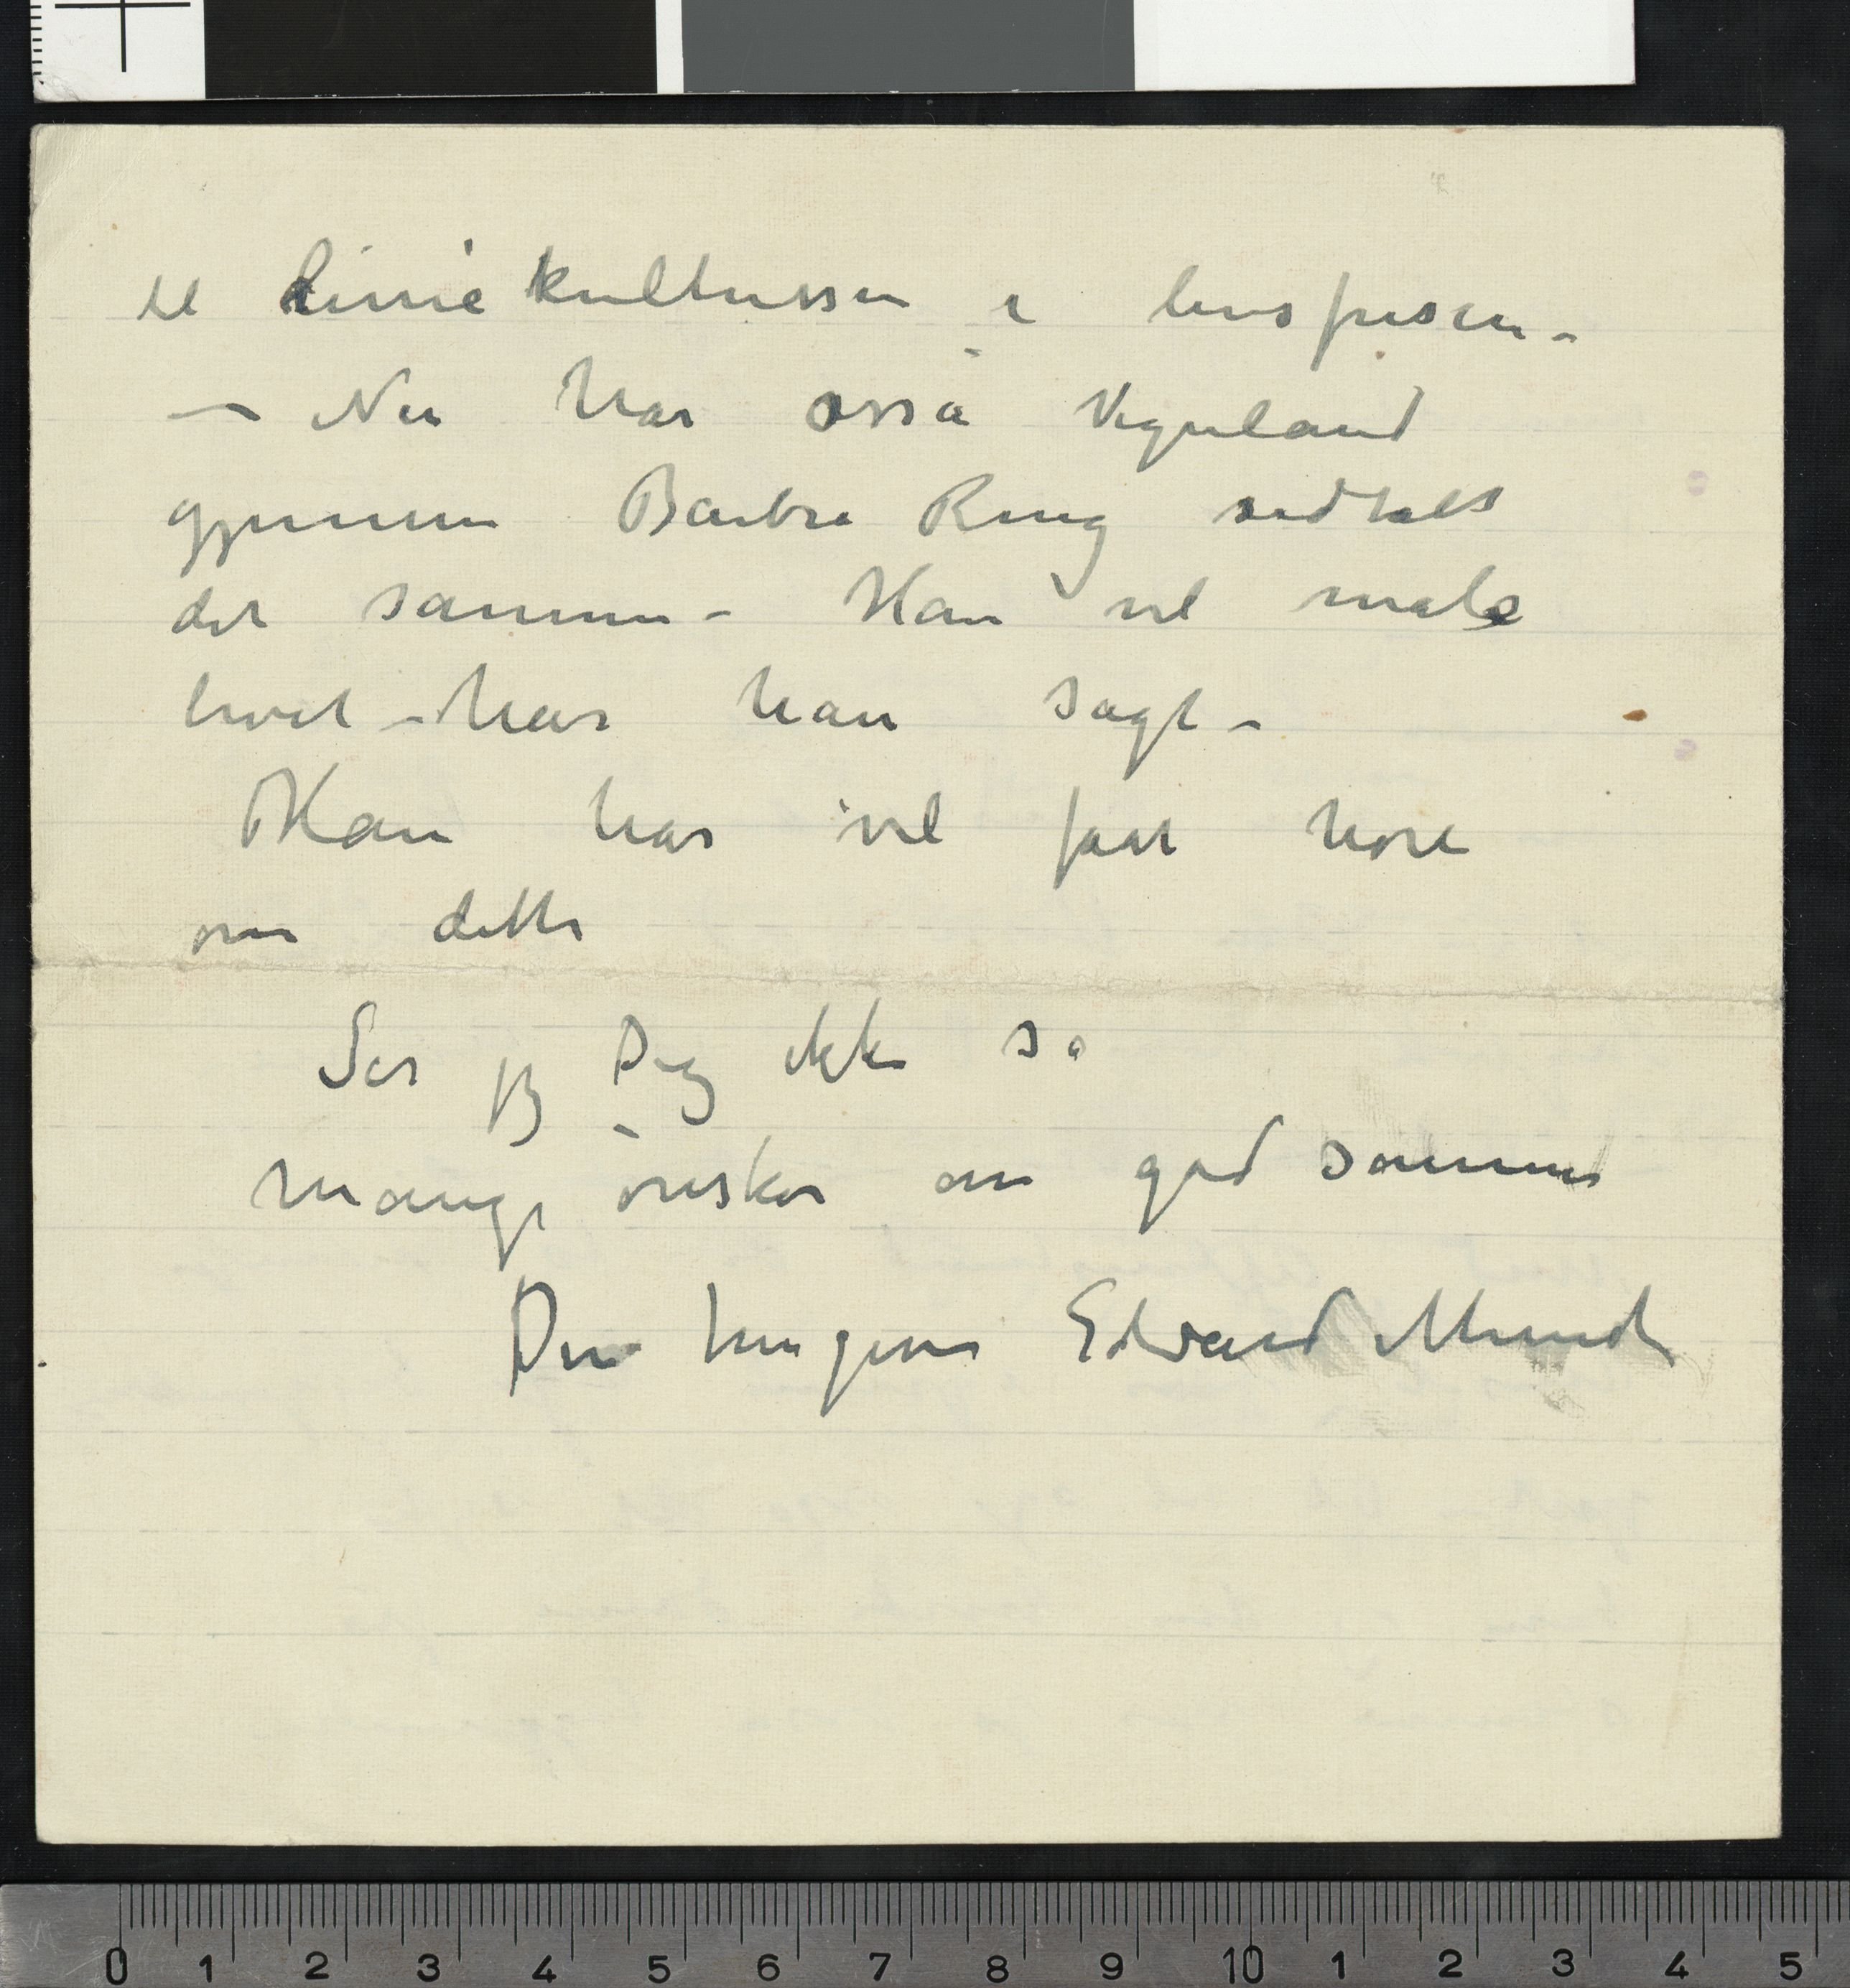 til Liniekultussen i livsfrisen –
– Nu har osså Vigeland
gjennem Barbra Ring udtalt
det samme – Han vil male
livet – har han sagt –
Han har vel faat høre
om dette
Ser jeg Dig ikke så
mange ønsker om god sommer
Din hengivne Edvard Munch
0 1 2 3 4 5 6 7 8 9 10 1 2 3 4 5